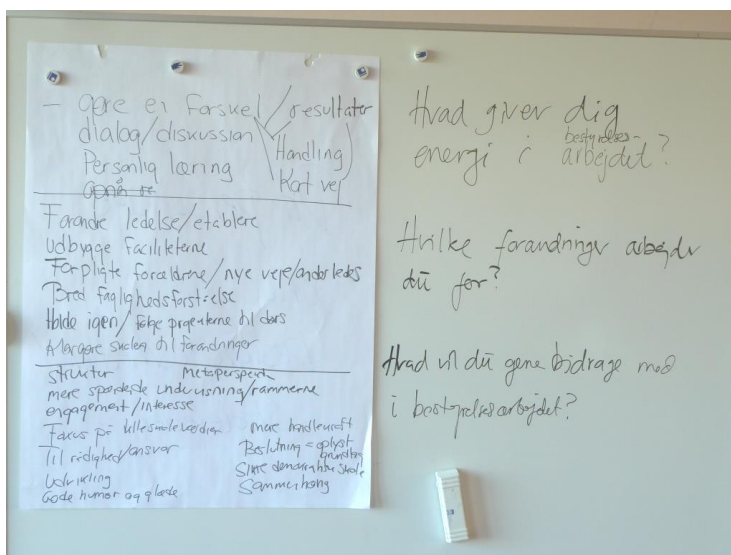 - gøre en forskel / resultater
dialog/diskussion
Handling
Personlig læring
Kort vej
opnå
Forandre ledelse/etablere
Udbygge faciliteterne
Forpligte forældrene/nye veje/anderledes
Bred faglighedsforståelse
Holde igen/følge projekterne til dørs
til forandringer
struktur
Metaperspektiv
mere spændende undervisning/rammerne
engagement/interesse
Fokus på lilleskoleværdier
Til rådighed/ansvar
Udvikling
Gode humor og glæde
mere handlekraft
Beslutning = oplyst
grundlag
Sikre demokratisk skole
Sammenhæng
Hvad giver dig
energi i bestyrelses-
arbejdet?
Hvilke forandringer arbejder
du for?
Hvad vil du gerne bidrage med
i bestyrelsesarbejdet?